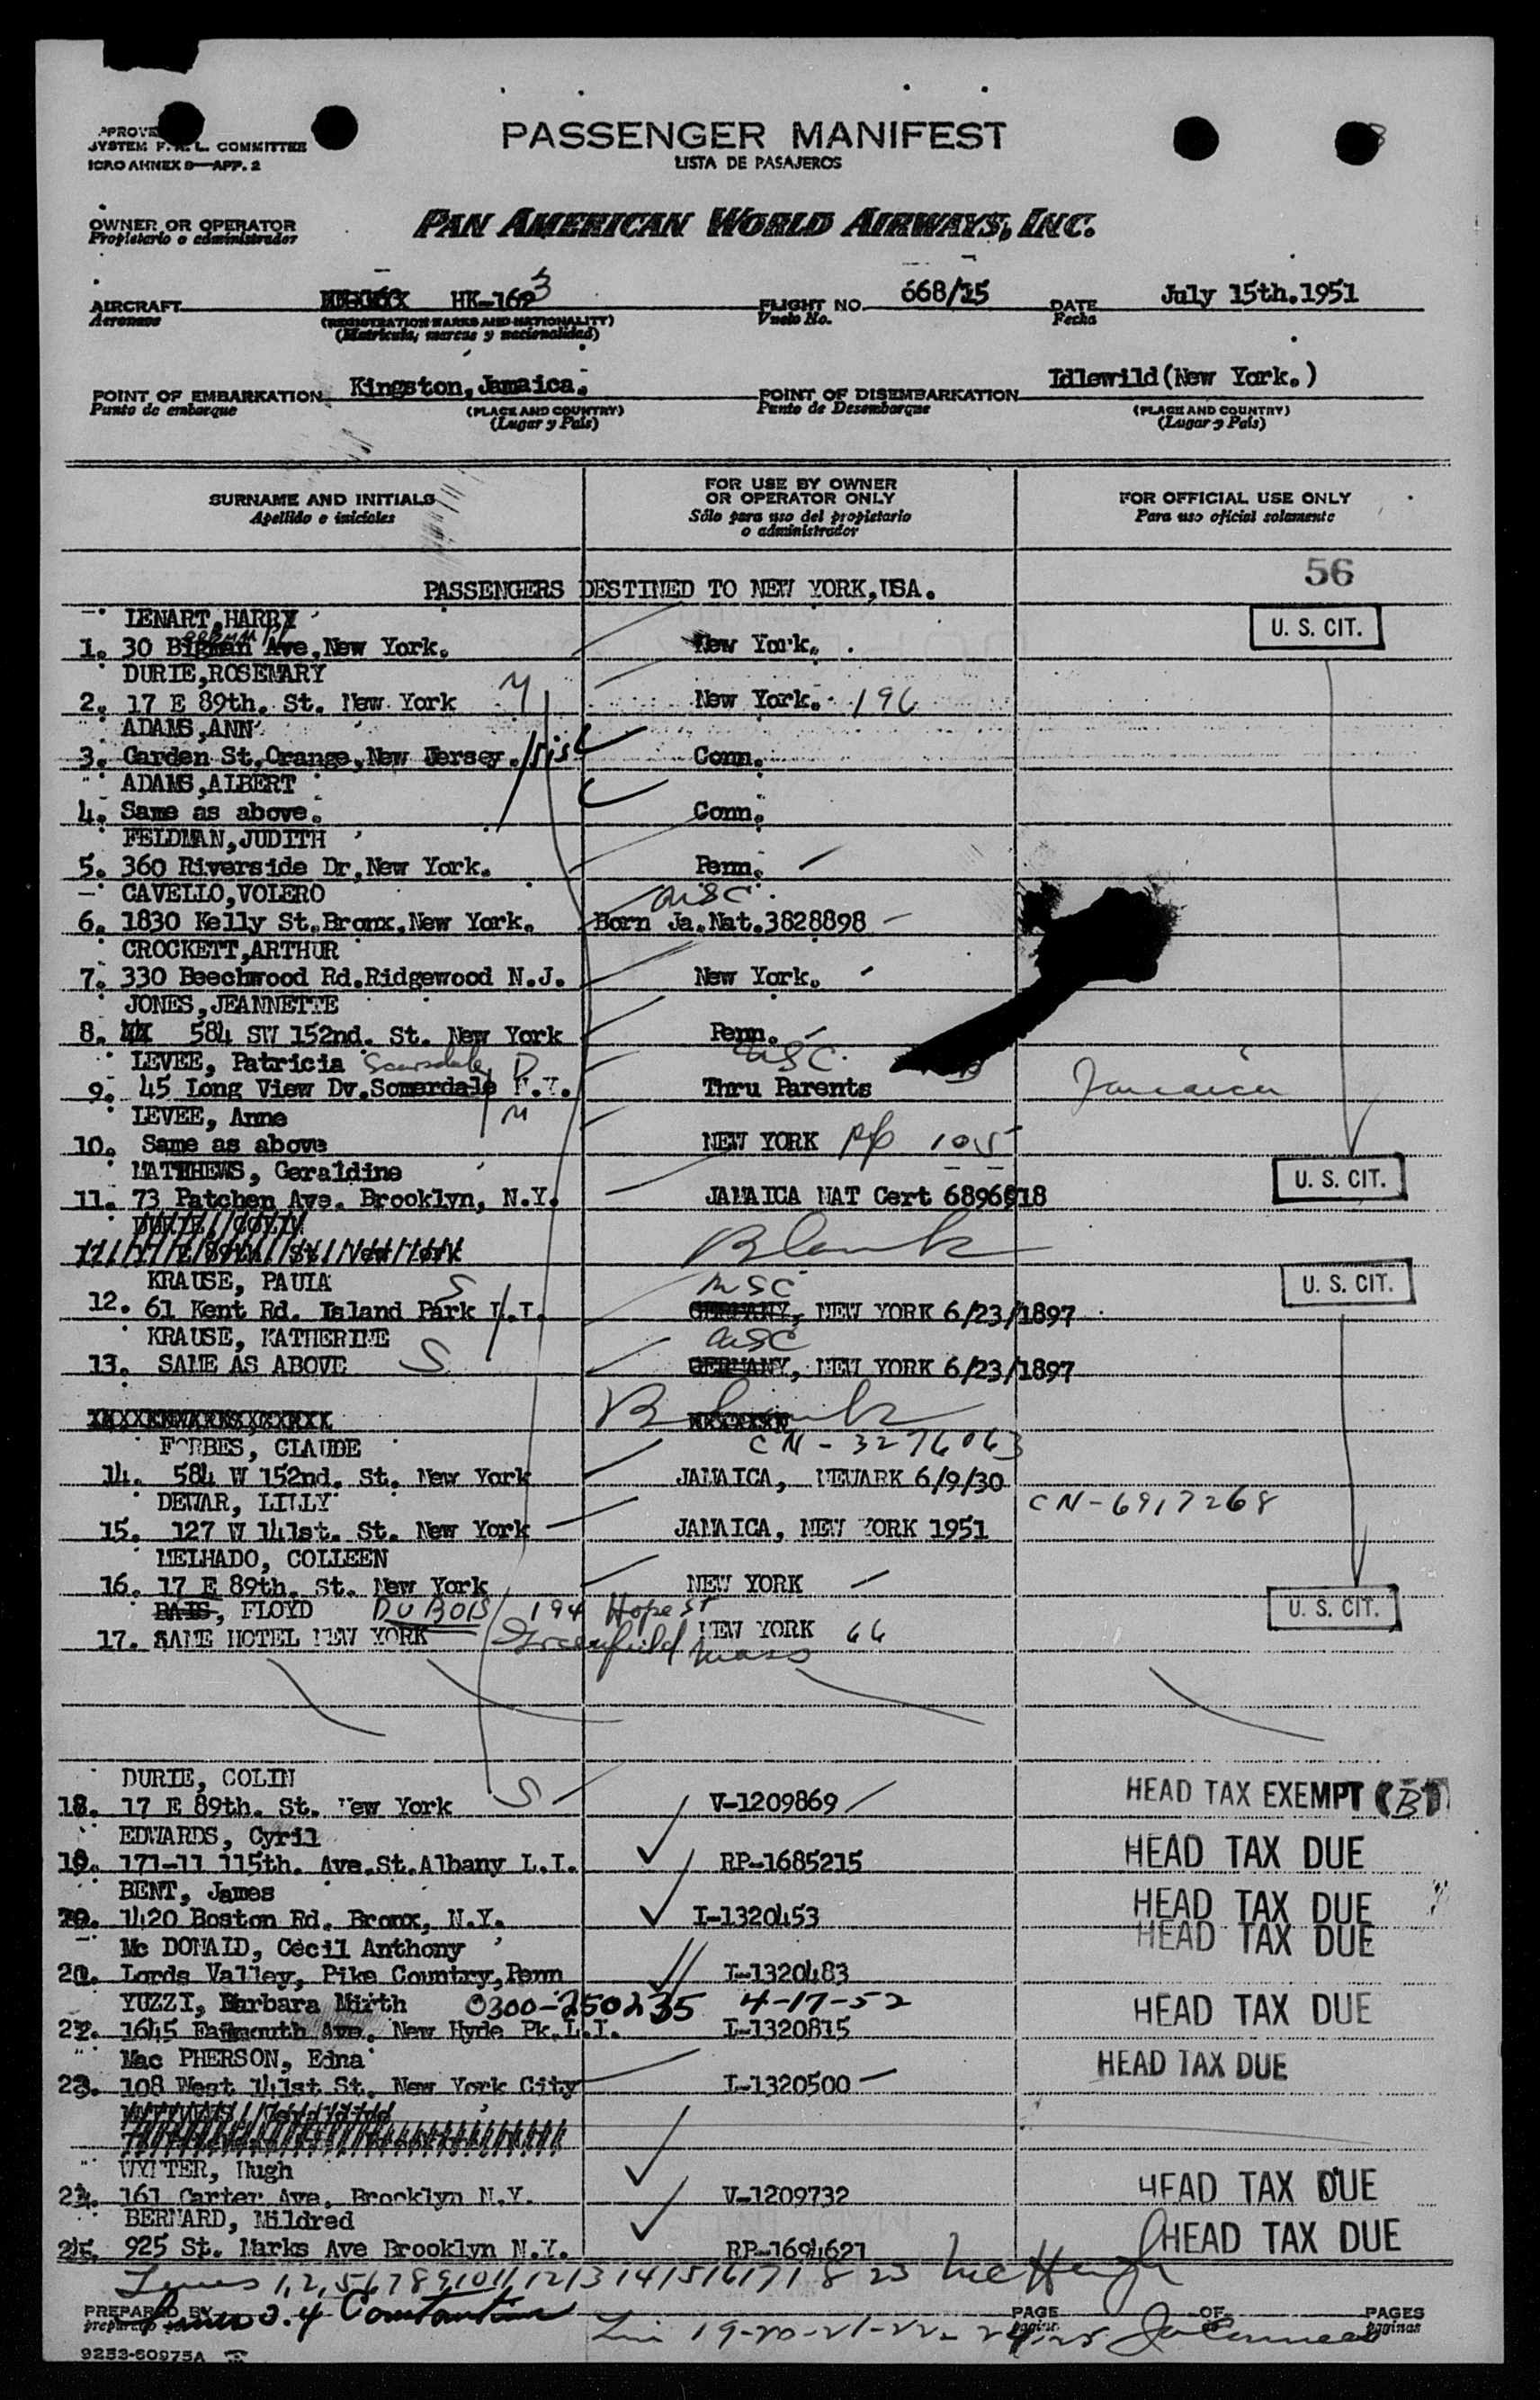 PASSENGER MANIFEST
LISTA DE PASAJEROS
SYSTEM F. A. L. COMMITTEE
ICAO ANNEX 9—APP. 2
OWNER OR OPERATOR PAN AMERICAN WORLD AIRWAYS, INC.
Propietario o administrador
AIRCRAFT HK-163 FLIGHT NO. 668/15 DATE July 15th.1951
Aeronave (REGISTRATION MARKS AND NATIONALITY) Vuelo No. Fecha
(Matrícula, marcas y nacionalidad)
POINT OF EMBARKATION Kingston,Jamaica. POINT OF DISEMBARKATION Idlewild(New York.)
Punto de embarque (PLACE AND COUNTRY) Punto de Desembarque (PLACE AND COUNTRY)
(Lugar y País) (Lugar y País)
SURNAME AND INITIALS FOR USE BY OWNER OR OPERATOR ONLY FOR OFFICIAL USE ONLY
Apellido e iniciales Sólo para uso del propietario o administrador Para uso oficial solamente
56
PASSENGERS DESTINED TO NEW YORK,USA.
LENART,HARRY U. S. CIT.
1. 30 Ave,New York. New York.
DURIE,ROSEMARY M
2. 17 E 89th. St. New York New York. 196
ADAMS,ANN
3. Garden St,Orange,New Jersey. Conn.
ADAMS,ALBERT
4. Same as above. Conn.
FELDMAN,JUDITH
5. 360 Riverside Dr,New York. Penn.
CAVELLO,VOLERO USC
6. 1830 Kelly St.Bronx,New York. Born Ja.Nat.3828898
CROCKETT,ARTHUR
7. 330 Beechwood Rd.Ridgewood N.J. New York.
JONES,JEANNETTE
8. 584 SW 152nd. St. New York Penn.
LEVEE, Patricia Scarsdale D USC
9. 45 Long View Dv.Somerdale N.Y. Thru Parents Jamaica
LEVEE, Anne M
10. Same as above NEW YORK 105
MATTHEWS, Geraldine U. S. CIT.
11. 73 Patchen Ave. Brooklyn, N.Y. JAMAICA NAT Cert 6896918
Blank
KRAUSE, PAULA S USC U. S. CIT.
12. 61 Kent Rd. Island Park L.I. GERMANY, NEW YORK 6/23/1897
KRAUSE, KATHERINE USC
13. SAME AS ABOVE S GERMANY, NEW YORK 6/23/1897
Blank
FORBES, CLAUDE CN - 3276063
14. 584 W 152nd. St. New York JAMAICA, NEWARK 6/9/30
DEWAR, LILLY CN-6917268
15. 127 W 141st. St. New York JAMAICA, NEW YORK 1951
MELHADO, COLLEEN
16. 17 E 89th. St. New York NEW YORK
FLOYD DUBOIS 194 Hope St U. S. CIT.
17. SAME HOTEL NEW YORK Greenfield Mass NEW YORK 66
DURIE, COLIN
18. 17 E 89th. St. New York S V-1209869 HEAD TAX EXEMPT (B)
EDWARDS, Cyril
19. 171-11 115th. Ave.St.Albany L.I. RP-1685215 HEAD TAX DUE
BENT, James
20. 1420 Boston Rd. Bronx, N.Y. I-1320453 HEAD TAX DUE
Mc DONALD, Cecil Anthony HEAD TAX DUE
21. Lords Valley, Pike Country,Penn I-1320483
YUZZI, Barbara Mirth 0300-250235 4-17-52 HEAD TAX DUE
22. 1645 Falmouth Ave. New Hyde Pk.L.I. I-1320815
Mac PHERSON, Edna HEAD TAX DUE
23. 108 West 141st St. New York City I-1320500
WYTTER, Hugh
24. 161 Carter Ave. Brooklyn N.Y. V-1209732 HEAD TAX DUE
BERNARD, Mildred
25. 925 St. Marks Ave Brooklyn N.Y. RP-1694621 HEAD TAX DUE
Lines 1,2,5,6,7,8,9,10,11,12,13,14,15,16,17,18 23
PREPARED BY Lines 3.4 Constantine PAGE OF PAGES
preparado por 19-20-21-22-24-25 página páginas
9253-60975A